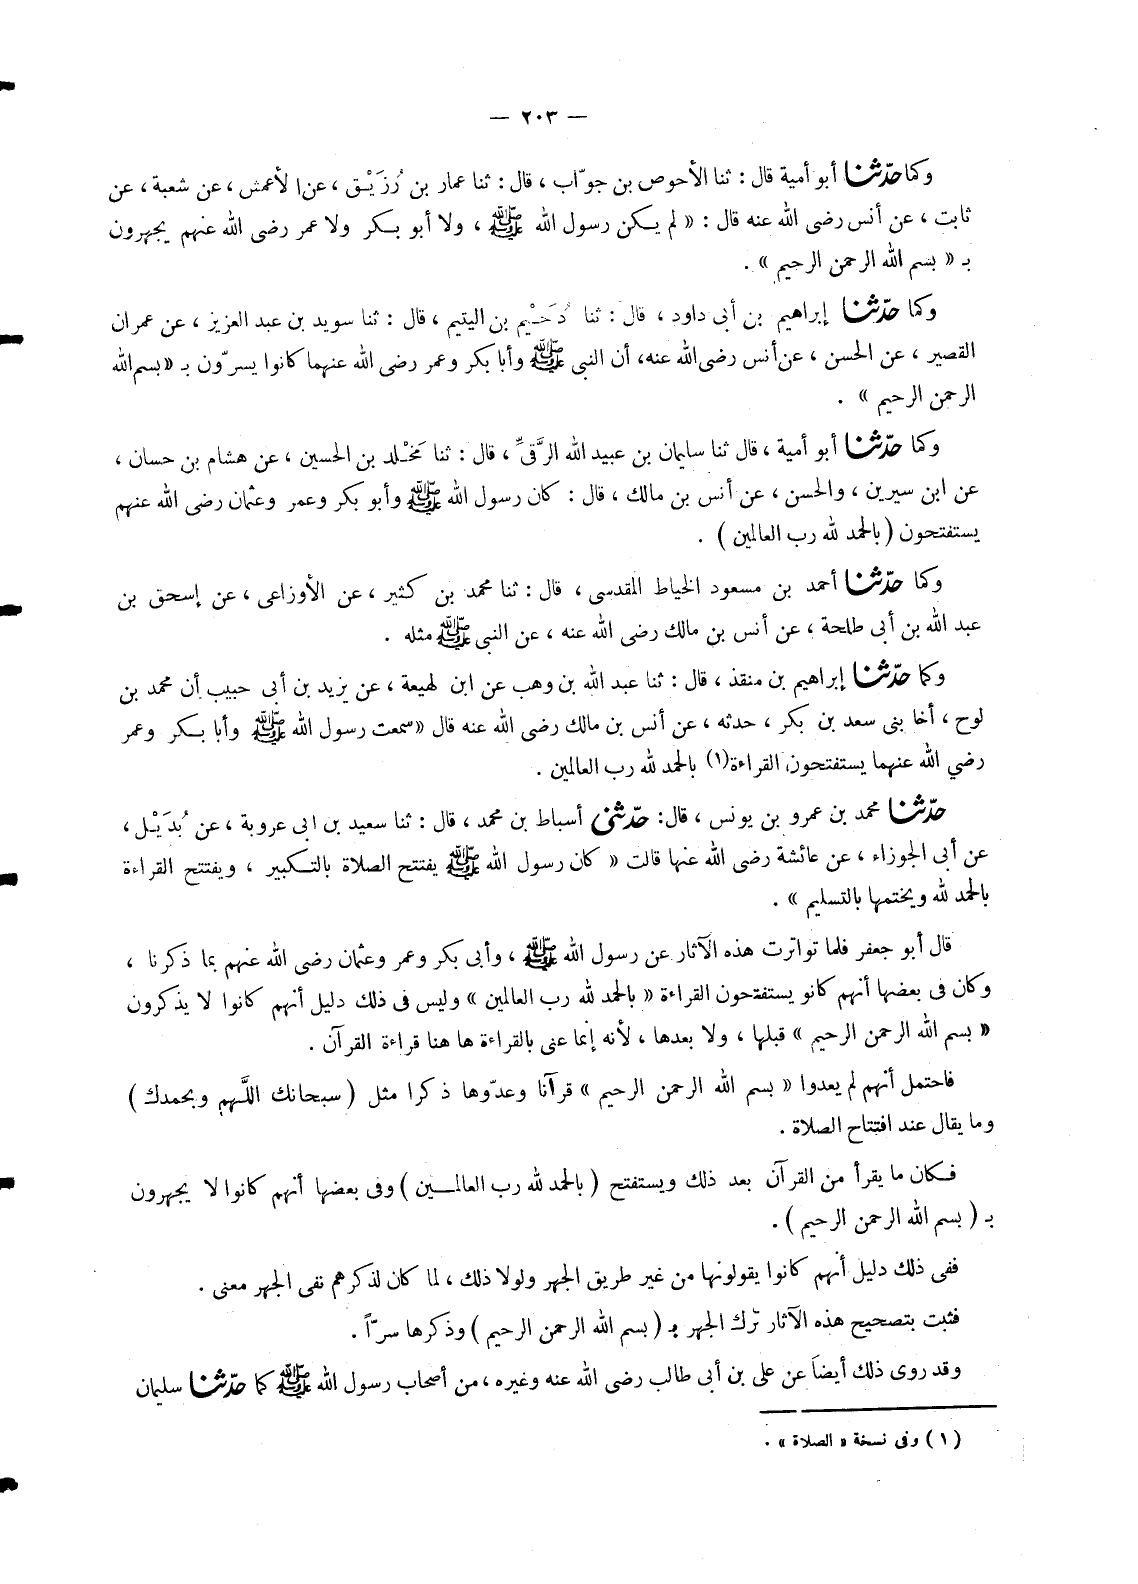 — ٢٠٣ —
وكما حدّثنا أبو أمية قال : ثنا الأحوص بن جوّاب ، قال : ثنا عمار بن رُزَيْق ، عن الأعمش ، عن شعبة ، عن
ثابت ، عن أنس رضى الله عنه قال : « لم يكن رسول الله ﷺ ، ولا أبو بكر ولا عمر رضى الله عنهم يجهرون
بـ « بسم الله الرحمن الرحيم » .
وكما حدّثنا إبراهيم بن أبى داود ، قال : ثنا دُحَيْم بن اليتيم ، قال : ثنا سويد بن عبد العزيز ، عن عمران
القصير ، عن الحسن ، عن أنس رضى الله عنه، أن النبى ﷺ وأبا بكر وعمر رضى الله عنهما كانوا يسرّون بـ «بسم الله
الرحمن الرحيم » .
وكما حدّثنا أبو أمية ، قال ثنا سليمان بن عبيد الله الرَّقىِّ ، قال : ثنا مَخْلد بن الحسين ، عن هشام بن حسان ،
عن ابن سيرين ، والحسن ، عن أنس بن مالك ، قال : كان رسول الله ﷺ وأبو بكر وعمر وعثمان رضى الله عنهم
يستفتحون ( بالحمد لله رب العالمين ) .
وكما حدّثنا أحمد بن مسعود الخياط المقدسى ، قال : ثنا محمد بن كثير ، عن الأوزاعى ، عن إسحق بن
عبد الله بن أبى طلحة ، عن أنس بن مالك رضى الله عنه ، عن النبى ﷺ مثله .
وكما حدّثنا إبراهيم بن منقذ ، قال : ثنا عبد الله بن وهب عن ابن لهيعة ، عن يزيد بن أبى حبيب أن محمد بن
لوح ، أخا بنى سعد بن بكر ، حدثه ، عن أنس بن مالك رضى الله عنه قال «سمعت رسول الله ﷺ وأبا بكر وعمر
رضي الله عنهما يستفتحون القراءة(١) بالحمد لله رب العالمين .
حدّثنا محمد بن عمرو بن يونس ، قال: حدّثنى أسباط بن محمد ، قال : ثنا سعيد بن ابى عروبة ، عن بُدَيْل ،
عن أبى الجوزاء ، عن عائشة رضى الله عنها قالت « كان رسول الله ﷺ يفتتح الصلاة بالتكبير ، ويفتتح القراءة
بالحمد لله ويختمها بالتسليم » .
قال أبو جعفر فلما تواترت هذه الآثار عن رسول الله ﷺ ، وأبى بكر وعمر وعثمان رضى الله عنهم بما ذكرنا ،
وكان فى بعضها أنهم كانو يستفتحون القراءة « بالحمد لله رب العالمين » وليس فى ذلك دليل أنهم كانوا لا يذكرون
« بسم الله الرحمن الرحيم » قبلها ، ولا بعدها ، لأنه إنما عنى بالقراءة ها هنا قراءة القرآن .
فاحتمل أنهم لم يعدوا « بسم الله الرحمن الرحيم » قرآنا وعدّوها ذكرا مثل ( سبحانك اللَّهم وبحمدك )
وما يقال عند افتتاح الصلاة .
فكان ما يقرأ من القرآن بعد ذلك ويستفتح ( بالحمد لله رب العالمـين ) وفى بعضها أنهم كانوا لا يجهرون
بـ ( بسم الله الرحمن الرحيم ) .
ففى ذلك دليل أنهم كانوا يقولونها من غير طريق الجهر ولولا ذلك ، لما كان لذكرهم نفى الجهر معنى .
فثبت بتصحيح هذه الآثار ترك الجهر بـ ( بسم الله الرحمن الرحيم ) وذكرها سرّاً .
وقد روى ذلك أيضاَ عن على بن أبى طالب رضى الله عنه وغيره ، من أصحاب رسول الله ﷺ كما حدّثنا سليمان
( ١ ) وفى نسخة « الصلاة » .